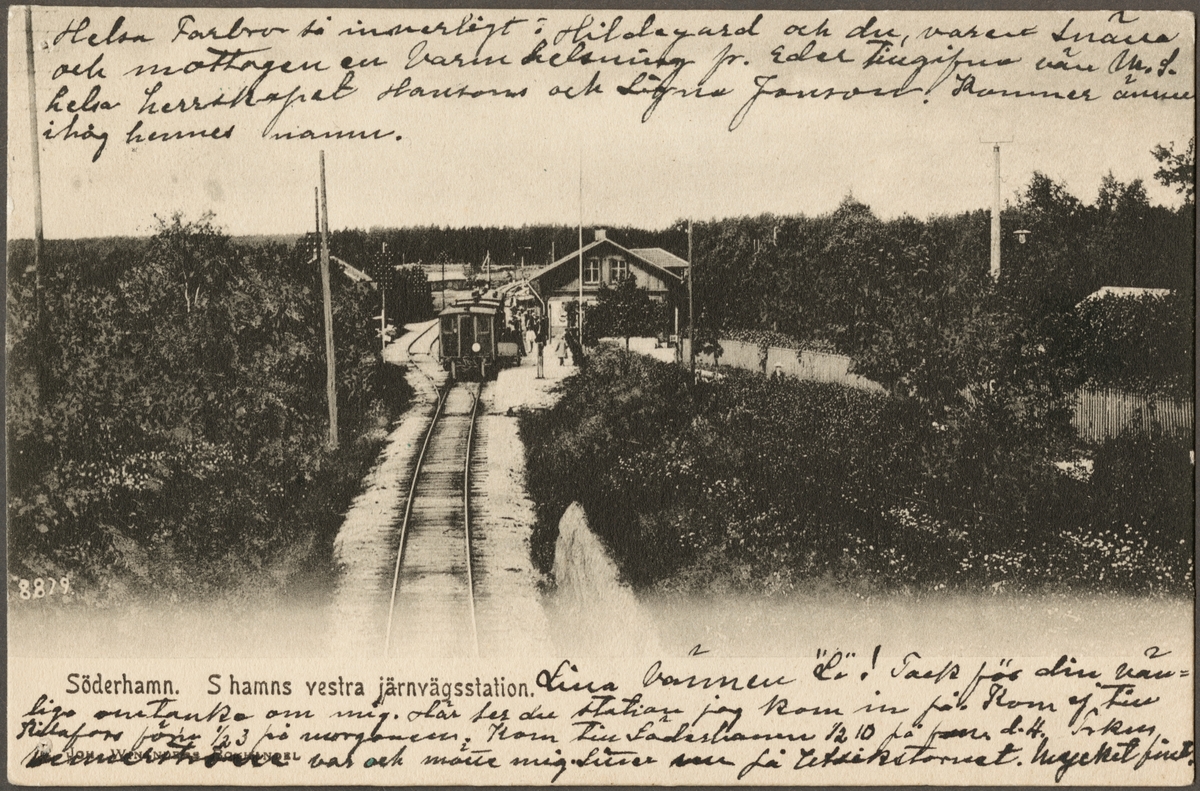 Helsa Farbror så innerligt, Hildegard och du, varen snäva
och mottagen en varm helsning fr. Eder tillgifna vän M. S.
helsa herrskapet Hansons och Signe Jonson. Kommer
ihåg hennes namn.
8879
Söderhamn. S hamns vestra järnvägsstation.
Lilla vännen "Lo"! Tack för din vän-
liga omtanke om mig. Här ser du station jag kom in på. Kom ej till
Kilafors förr 1/2 3 på morgonen. Kom till Söderhamn 1/2 10 på d.
Joh. bokhandel
var och mötte mig. Sitter nu på Utsikstornet. Mycket fint.